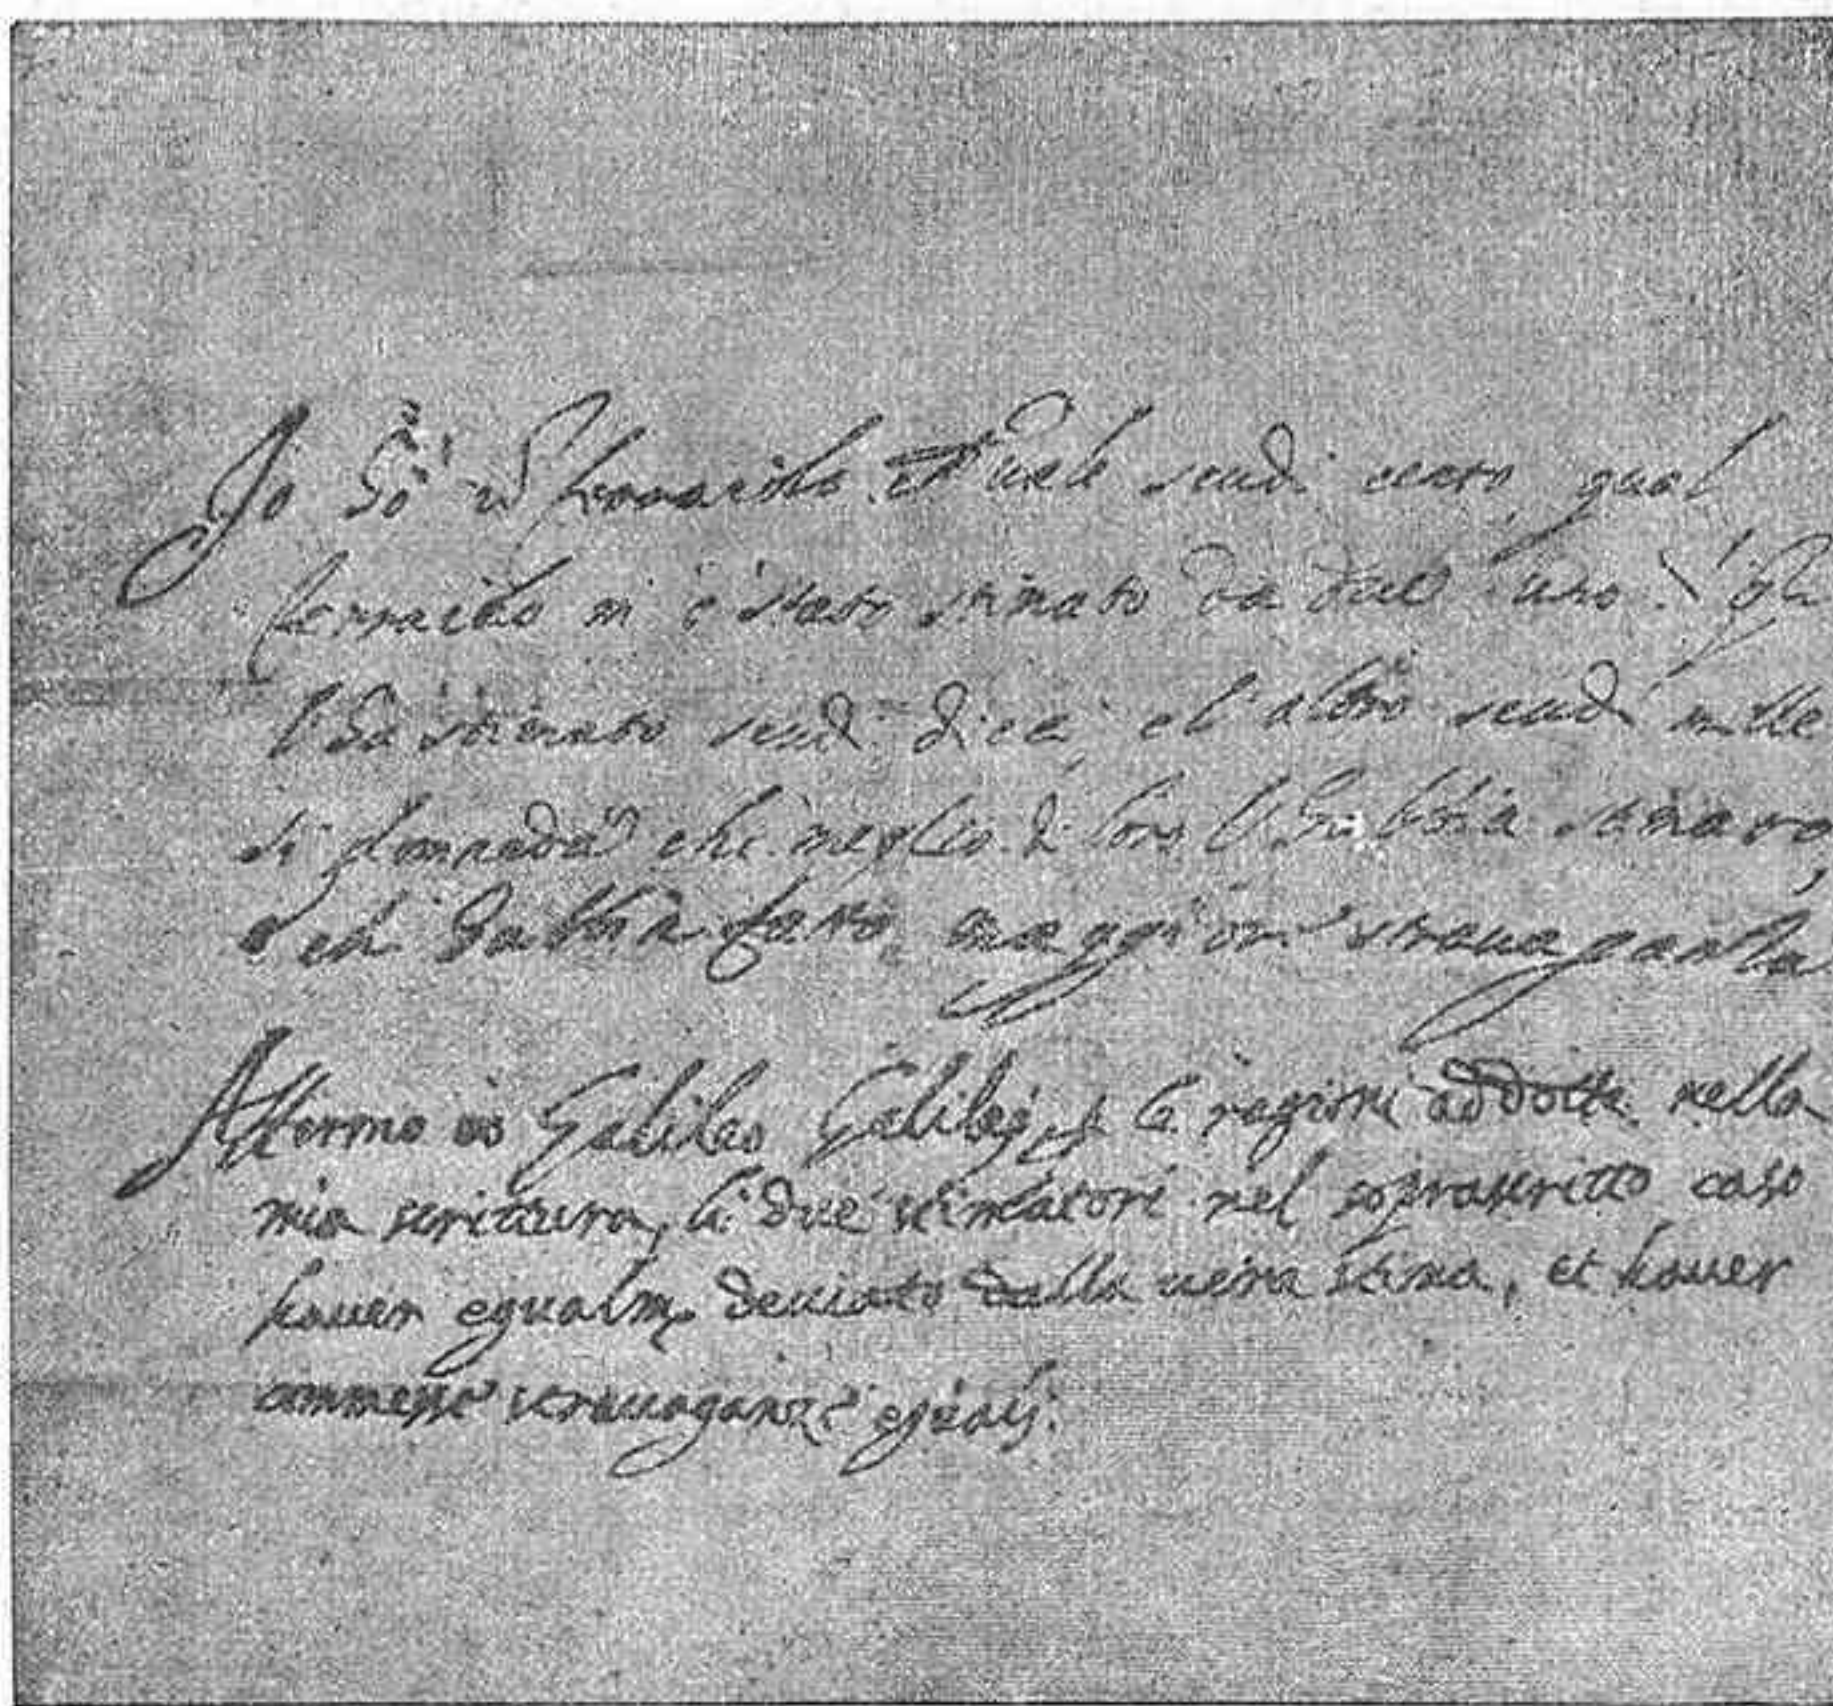 Io ho un ferraiolo ch vale scudi cento qual
ferraiolo mi è stato stimato da due l'uno
l'ha stimato scudi dieci, el altro scudi mille
si domanda chi meglio di loro l' habbia stimato
e chi habbia fatto maggior stravaganza
Affermo io Galileo Galilej, le ragioni addotte nella
mia scrittura, li due stimatori nel soprascritto caso
haver egualm. deviato dalla vera stima, et haver
commesse stravaganze eguali.